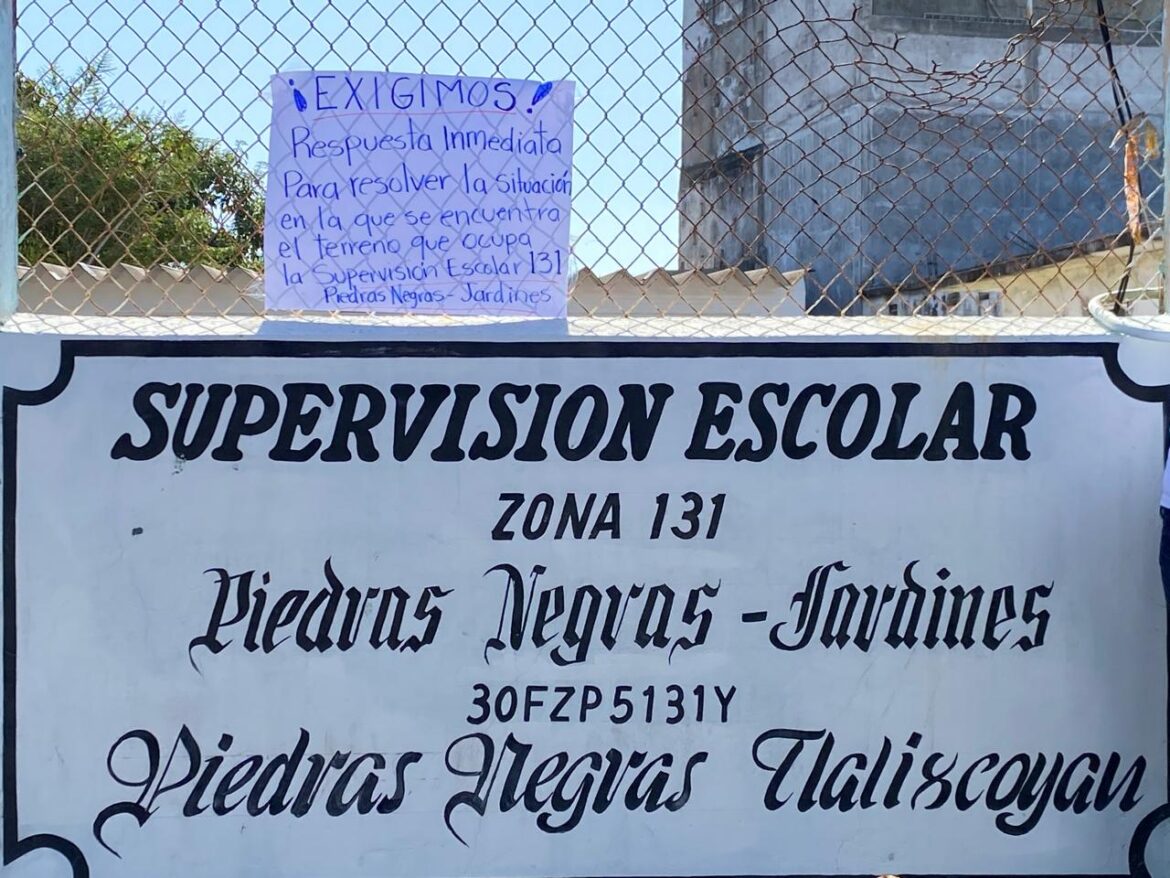 ¡EXIGIMOS!
Respuesta Inmediata
Para resolver la situación
en la que se encuentra
el terreno que ocupa
la Supervisión Escolar 131
Piedras Negras - Jardines
SUPERVISION ESCOLAR
ZONA 131
Piedras Negras - Jardines
30FZP5131Y
Piedras Negras Tlaliscoyan